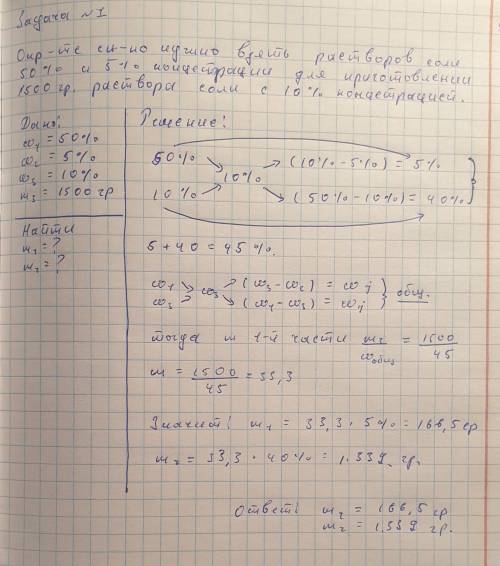 Задача №1
Опр-те ск-ко нужно взять растворов соли
50% и 5% концестрации для приготовлении
1500 гр. раствора соли с 10% концестрацией.
Дано:
ω₁ = 50%
ω₂ = 5%
ω₃ = 10%
m₃ = 1500 гр
Найти
m₁ = ?
m₂ = ?
Решение:
50% (10% - 5%) = 5%
10%
10% (50% - 10%) = 40%
5 + 40 = 45%.
ω₁ (ω₃ - ω₂) = ωу
ω₃ общ.
ω₃ (ω₁ - ω₃) = ωу
тогда m 1-й части m₂/ωобщ = 1500/45
m = 1500/45 = 33,3
Значит! m₁ = 33,3 · 5% = 166,5 гр
m₂ = 33,3 · 40% = 1.339 гр.
Ответ! m₂ = 166,5 гр
m₂ = 1.339 гр.